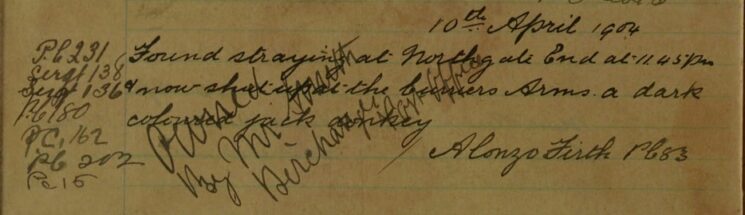 10th April 1904
Found straying at Northgate End at 11 45 pm
& now shut up at the Curriers Arms. a dark
coloured jack donkey
Alonzo Firth PC 83
PC 231
Sergt 138
Sergt 136
PC 180
PC, 162
PC 202
PC 15
Owned
By Mr Smith
Birchalls